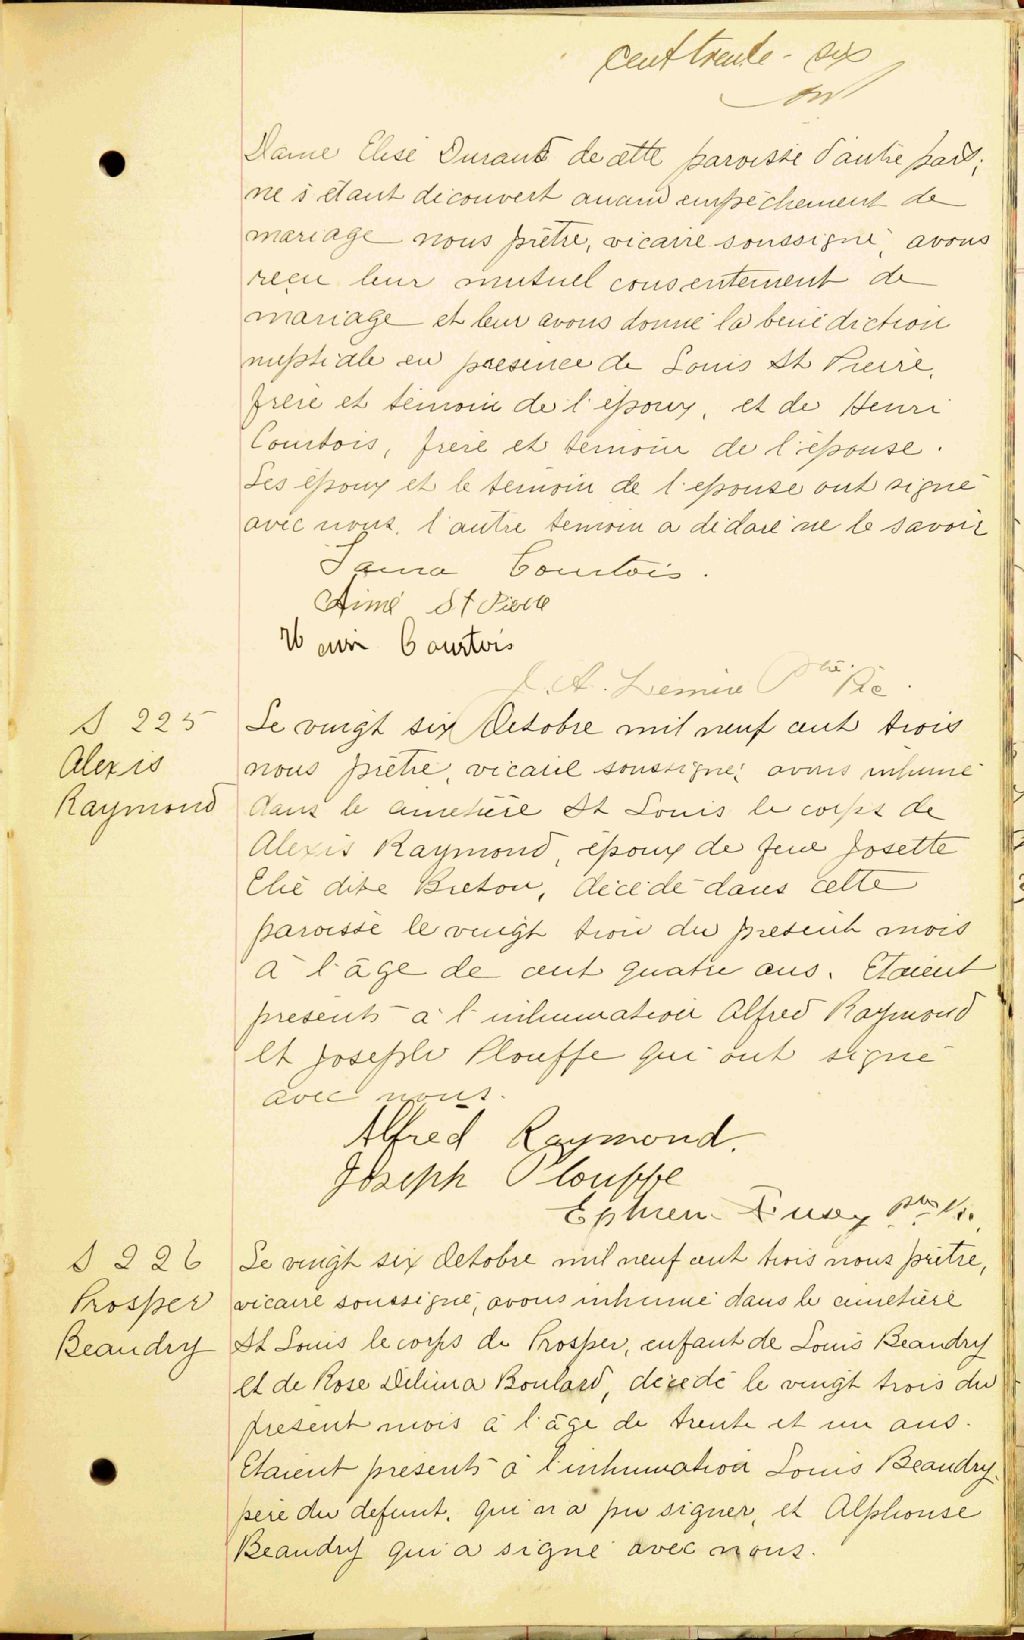 cent trente-six
Dame Elise Durand de cette paroisse d'autre part;
ne s'étant découvert aucun empêchement de
mariage nous prêtre, vicaire soussigné, avons
reçu leur mutuel consentement de
mariage et leur avons donné la bénédiction
nuptiale en présence de Louis St Pierre,
frère et témoin de l'époux, et de Henri
Courtois, frère et témoin de l'épouse.
Les époux et le témoin de l'épouse ont signé
avec nous, l'autre témoin a déclaré ne le savoir
Courtois.
Aimé St Pierre
Henri Courtois
J. A. Lemire Ptre Vic.
S 225
Alexis
Raymond
Le vingt six Octobre mil neuf cent trois
nous prêtre, vicaire soussigné, avons inhumé
dans le cimetière St Louis le corps de
Alexis Raymond, époux de feue Josette
Elie dite Breton, décédé dans cette
paroisse le vingt trois du présent mois
à l'âge de cent quatre ans. Etaient
présents à l'inhumation Alfred Raymond
et Joseph Plouffe qui ont signé
avec nous.
Alfred Raymond.
Joseph Plouffe
Ephrem Fusey Ptre Vic.
S 226
Prosper
Beaudry
Le vingt six Octobre mil neuf cent trois nous prêtre,
vicaire soussigné, avons inhumé dans le cimetière
St Louis le corps de Prosper, enfant de Louis Beaudry
et de Rose Délima Boulard, décédé le vingt trois du
présent mois à l'âge de trente et un ans.
Etaient présents à l'inhumation Louis Beaudry,
père du défunt, qui n'a pu signer, et Alphonse
Beaudry qui a signé avec nous.